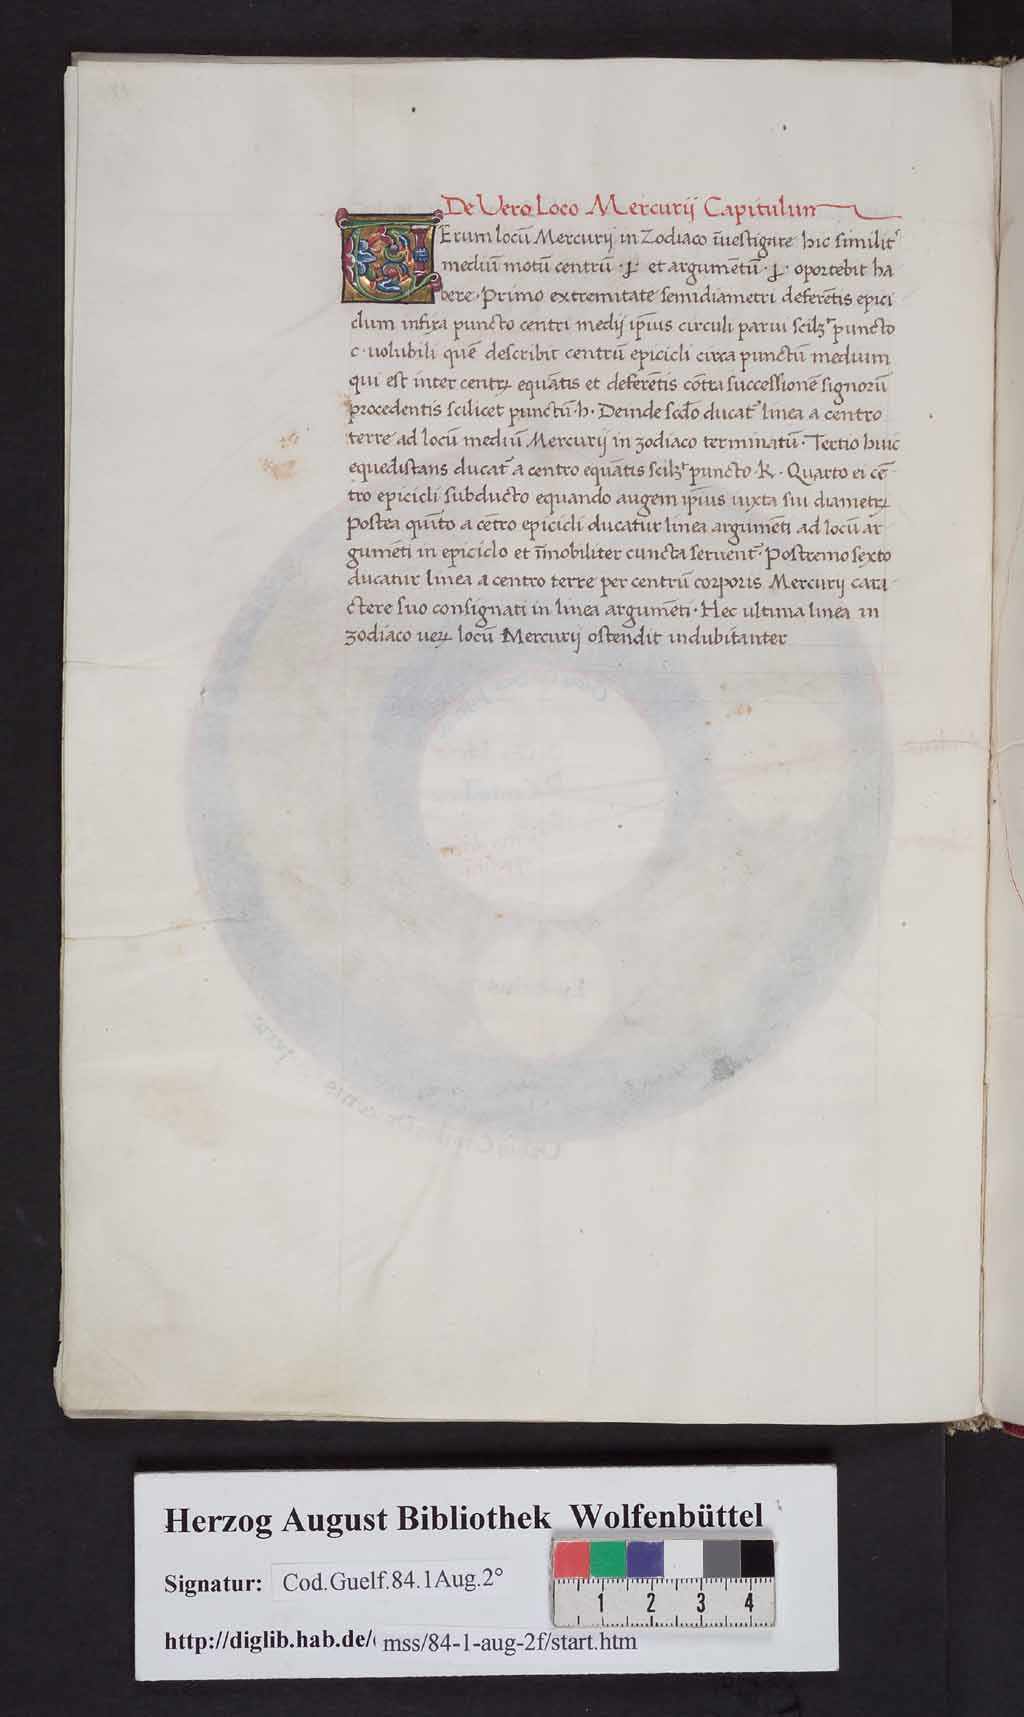 De Vero Loco Mercurij Capitulum
VErum locū Mercurij in Zodiaco īuestigare hic similit᷑
mediū motū centrū · et argumētū · oportebit ha
bere · Primo extremitate semidiametri deferētis epici
clum infixa puncto centri medij ip̄ius circuli parui scilꝫ puncto
c · uolubili quē describit centrū epicicli circa punctū medium
qui est inter centꝝ equātis et deferētis cōtra successionē signorū
procedentis scilicet punctū · h · Deinde scd̄o ducat᷑ linea a centro
terre ad locū mediū Mercurij in zodiaco terminatū · Tertio huic
equedistans ducat᷑ a centro equātis scilꝫ puncto · K · Quarto ei cē
tro epicicli subducto equando augem ip̄ius iuxta sui diametꝝ
Postea quīto a cētro epicicli ducatur linea argumēti ad locū ar
gumēti in epiciclo et īmobiliter cuncta seruent᷑ · Postremo sexto
ducatur linea a centro terre per centrū corporis Mercurij cara
ctere suo consignati in linea argumēti · Hec ultima linea in
zodiaco ueꝝ locū Mercurij ostendit indubitanter
Herzog August Bibliothek Wolfenbüttel
Signatur: Cod.Guelf.84.1Aug.2°
http://diglib.hab.de/ mss/84-1-aug-2f/start.htm
1 2 3 4